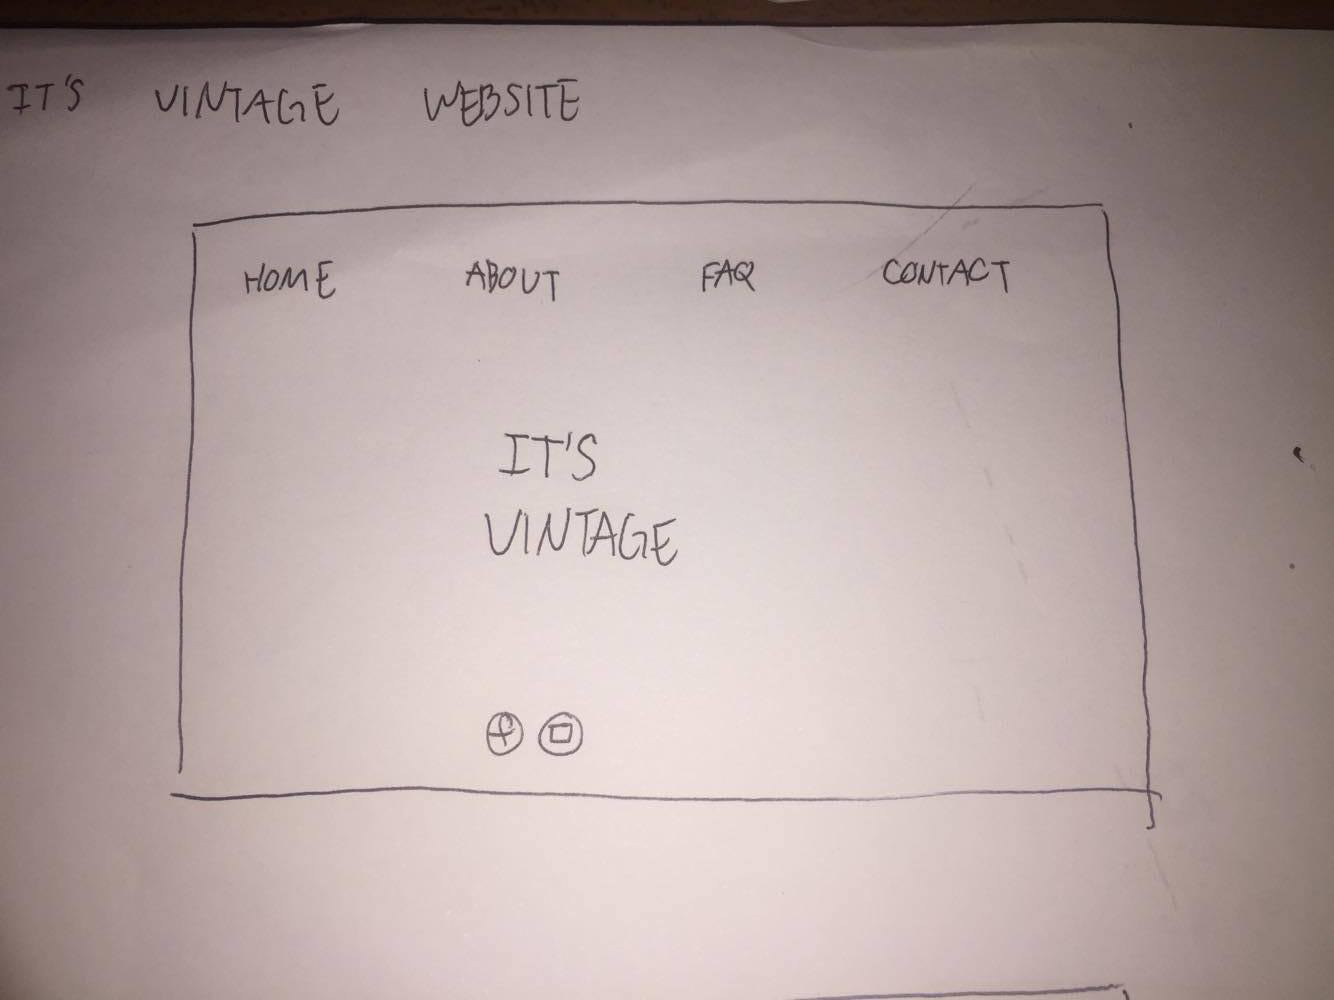 IT'S VINTAGE WEBSITE
HOME ABOUT FAQ CONTACT
IT'S
VINTAGE
f